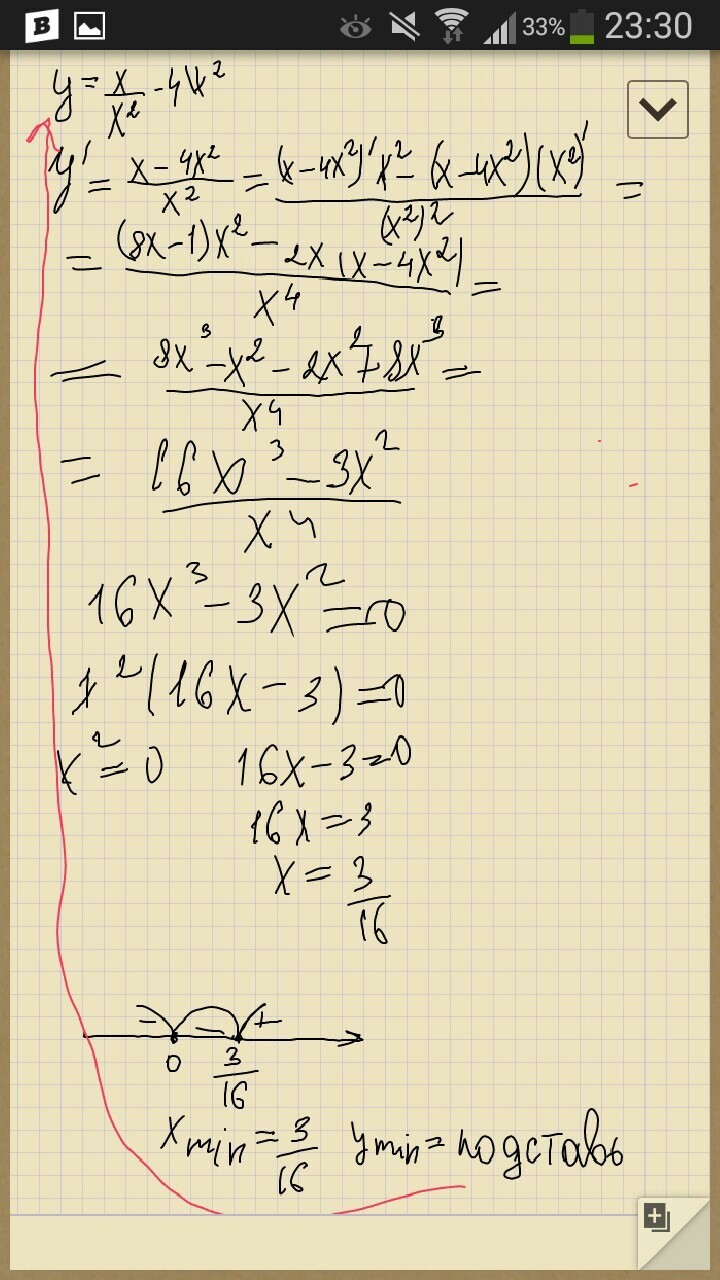 B 33% 23:30
y = x/x² - 4x²
y' = (x - 4x²)/x² = ((x - 4x²)'x² - (x - 4x²)(x²)')/(x²)² =
= ((8x - 1)x² - 2x(x - 4x²))/x⁴ =
= (8x³ - x² - 2x² + 8x³)/x⁴ =
= (16x³ - 3x²)/x⁴
16x³ - 3x² = 0
x²(16x - 3) = 0
x² = 0 16x - 3 = 0
16x = 3
x = 3/16
- - +
0 3/16
x min = 3/16 y min = подставь